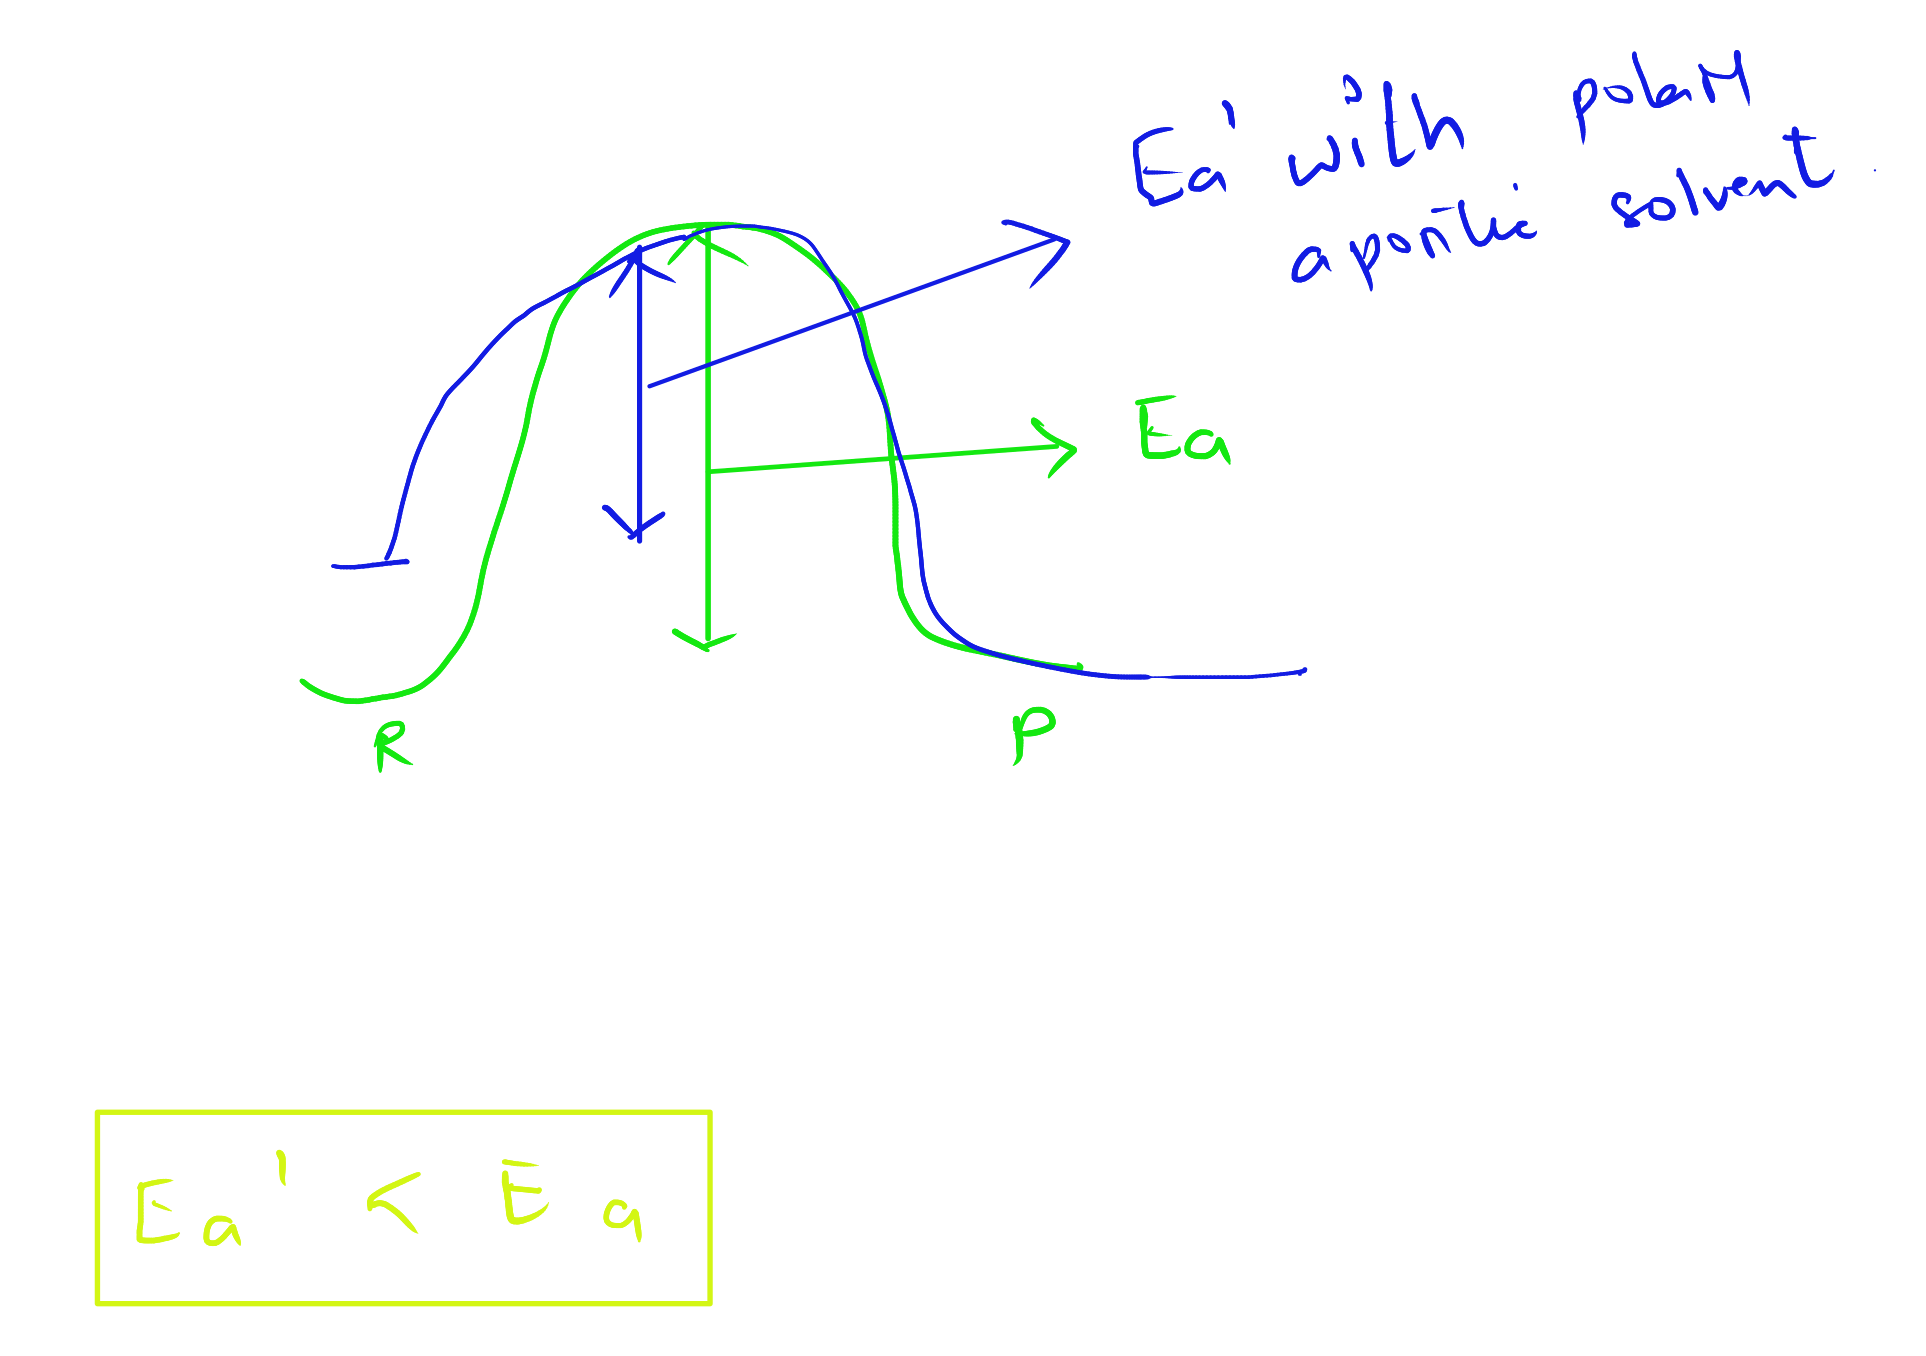 Ea' with polar
aprotic solvent
Ea
R
P
Ea' < Ea